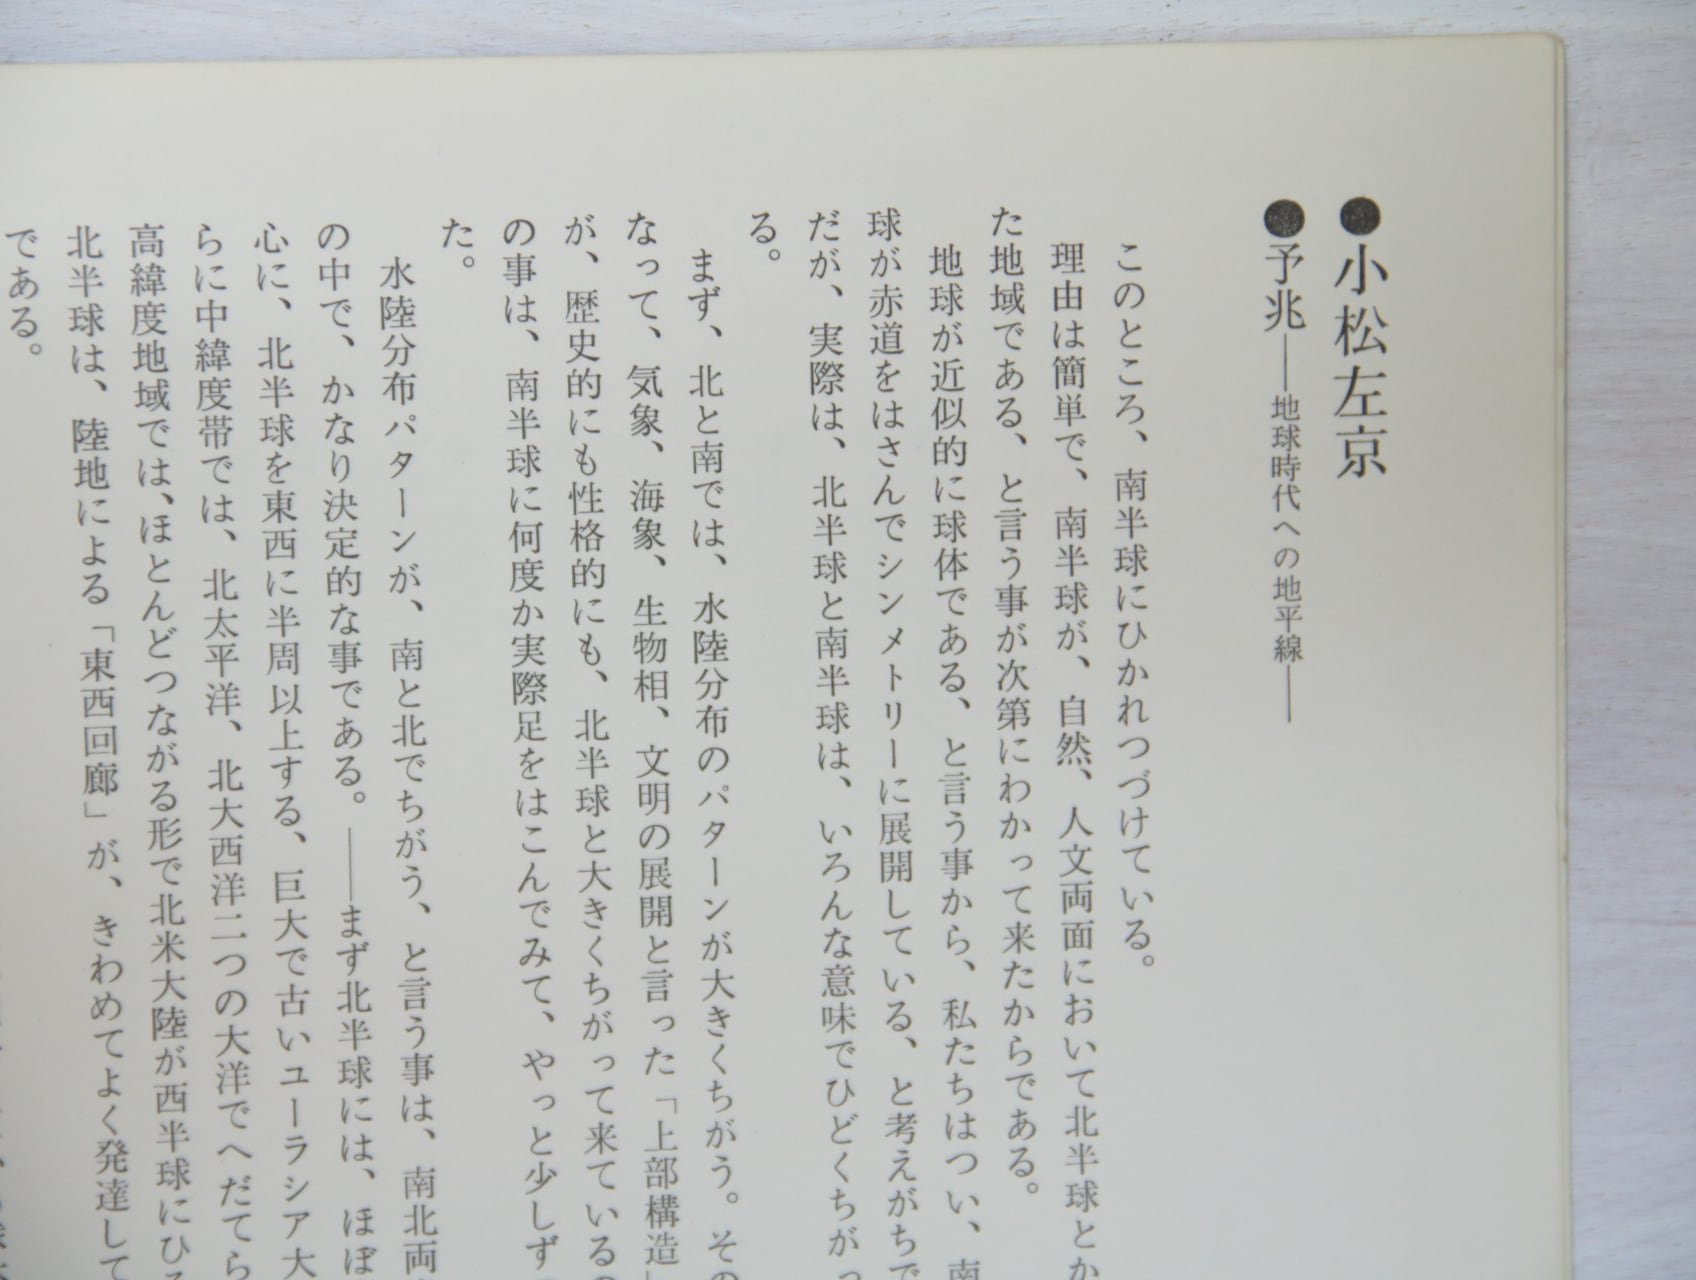 ●小松左京
●予兆――地球時代への地平線――
このところ、南半球にひかれつづけている。
理由は簡単で、南半球が、自然、人文両面において北半球とか
た地域である、と言う事が次第にわかって来たからである。
地球が近似的に球体である、と言う事から、私たちはつい、南
球が赤道をはさんでシンメトリーに展開している、と考えがちで
だが、実際は、北半球と南半球は、いろんな意味でひどくちがっ
る。
まず、北と南では、水陸分布のパターンが大きくちがう。その
なって、気象、海象、生物相、文明の展開と言った「上部構造」
が、歴史的にも性格的にも、北半球と大きくちがって来ているの
の事は、南半球に何度か実際足をはこんでみて、やっと少しず
た。
水陸分布パターンが、南と北でちがう、と言う事は、南北両
の中で、かなり決定的な事である。――まず北半球には、ほぼ
心に、北半球を東西に半周以上する、巨大で古いユーラシア大
らに中緯度帯では、北太平洋、北大西洋二つの大洋でへだてら
高緯度地域では、ほとんどつながる形で北米大陸が西半球にひ
北半球は、陸地による「東西回廊」が、きわめてよく発達して
である。